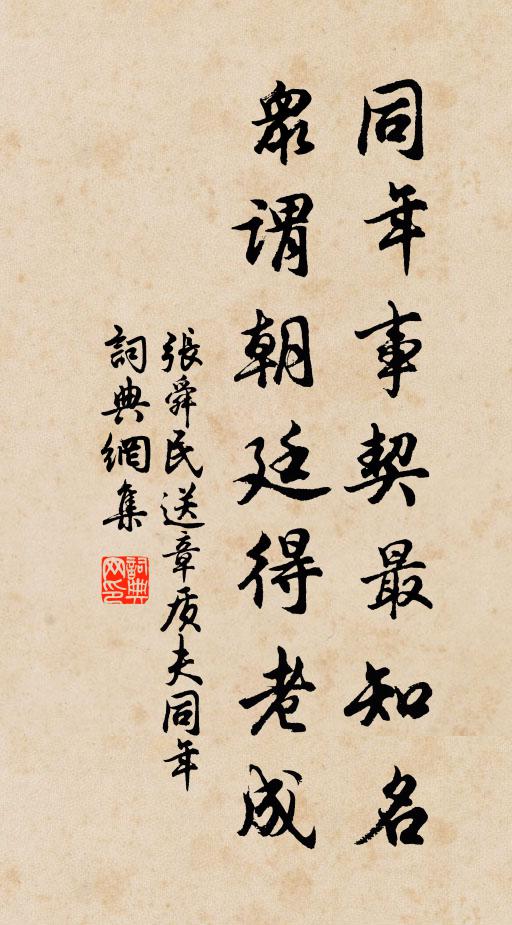 同年事契最知名
眾謂朝廷得老成
張舜民送章质夫同年
詞典網集
詞典网印